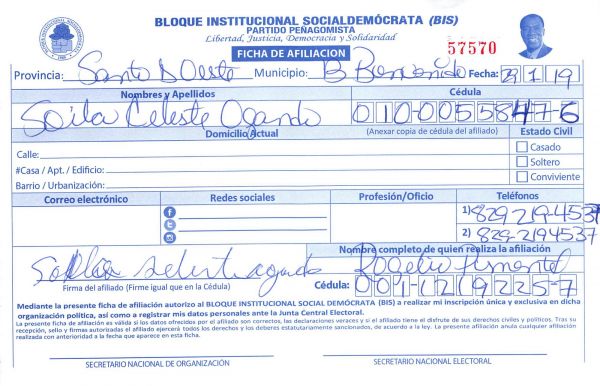 BLOQUE INSTITUCIONAL SOCIALDEMÓCRATA (BIS)
PARTIDO PEÑAGOMISTA
Libertad, Justicia, Democracia y Solidaridad
FICHA DE AFILIACION
57570
Provincia: Santo D Oeste Municipio: B Bienvenido Fecha: 21/1/19
Nombres y Apellidos Cédula
Soila Celeste Ogando 010-0055847-6
Domicilio Actual (Anexar copia de cédula del afiliado) Estado Civil
Calle: Casado
#Casa / Apt. / Edificio: Soltero
Barrio / Urbanización: Conviviente
Correo electrónico Redes sociales Profesión/Oficio Teléfonos
1) 829 219-4537
2) 829-2194537
Nombre completo de quien realiza la afiliación
Rogelio Pimentel
Firma del afiliado (Firme igual que en la Cédula) Cédula: 001-1219225-7
Mediante la presente ficha de afiliación autorizo al BLOQUE INSTITUCIONAL SOCIAL DEMÓCRATA (BIS) a realizar mi inscripción única y exclusiva en dicha
organización política, así como a registrar mis datos personales ante la Junta Central Electoral.
La presente ficha de afiliación es válida si los datos ofrecidos por el afiliado son correctos, las declaraciones veraces y si el afiliado tiene el disfrute de sus derechos civiles y políticos. Tras su
recepción, sello y firmas autorizadas el afiliado ejercerá todos los derechos y los deberes estatutariamente sancionados, de acuerdo a la ley. La presente afiliación anula cualquier afiliación
realizada con anterioridad a la fecha que aparece en esta ficha.
SECRETARIO NACIONAL DE ORGANIZACIÓN SECRETARIO NACIONAL ELECTORAL